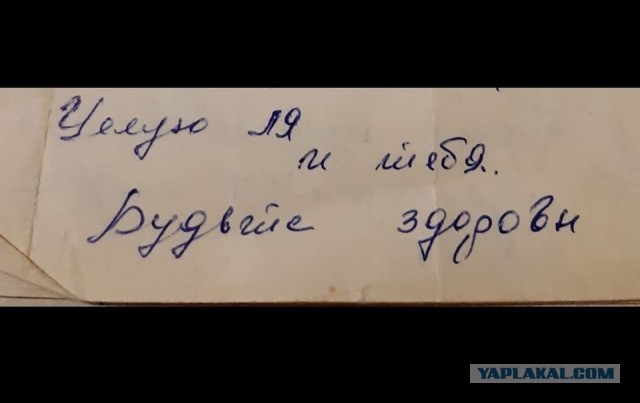 Целую ля
и тебя.
Будьте здоровы
YAPLAKAL.COM